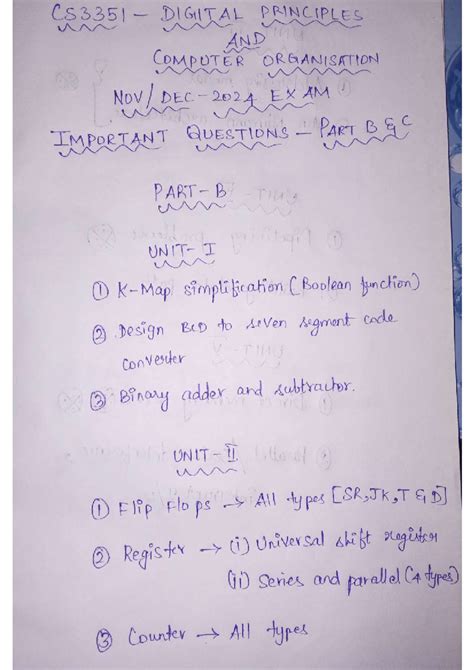 CS3351 - DIGITAL PRINCIPLES
AND
COMPUTER ORGANISATION
NOV/DEC-2024 EXAM
IMPORTANT QUESTIONS - PART B & C
PART-B
UNIT-I
① K-Map simplification (Boolean function)
② Design BCD to seven segment code
converter
③ Binary adder and subtractor.
UNIT-II
① Flip Flops → All types [SR, JK, T & D]
② Register → (i) Universal shift register
(ii) Series and parallel (4 types)
③ Counter → All types